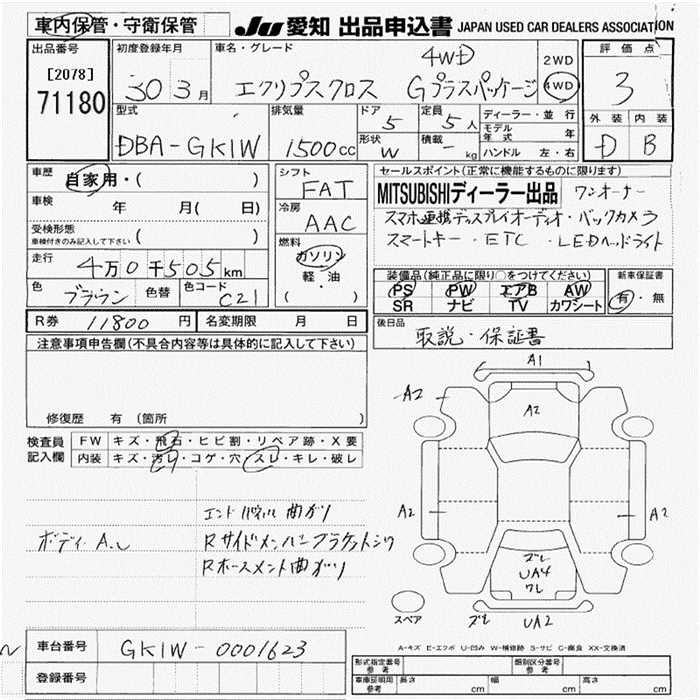 車内保管・守衛保管
JU 愛知 出品申込書 JAPAN USED CAR DEALERS ASSOCIATION
出品番号
[2078]
71180
初度登録年月
30 3月
車名・グレード
4WD
エクリプスクロス Gプラスパッケージ
2WD
4WD
評価点
3
外装 内装
D B
型式
DBA-GK1W
排気量
1500cc
ドア
5
定員
5人
形状
W
積載
- kg
ディーラー・並行
モデル年式 年
ハンドル 左・右
車歴
自家用・( )
車検 年 月( 日)
受検形態
車検付きのみ記入して下さい ( )
走行
4万0千505km
色 ブラウン 色替 色コード C21
シフト
FAT
冷房
AAC
燃料
ガソリン
軽・油
( )
セールスポイント(正常に機能するものに限ります)
MITSUBISHIディーラー出品 ワンオーナー
スマホ連携ディスプレイオーディオ・バックカメラ
スマートキー・ETC・LEDヘッドライト
装備品(純正品に限り○をつけてください)
PS PW エアB AW
SR ナビ TV カワシート
新車保証書
有・無
R券 11800円 名変期限 月 日
後日品
取説・保証書
注意事項申告欄(不具合内容等は具体的に記入して下さい)
修復歴 有 (箇所 )
検査員
記入欄
FW キズ・飛石・ヒビ割・リペア跡・X要
内装 キズ・汚レ・コゲ・穴・スレ・キレ・破レ
エンドパネル曲ガリ
ボディ A.U
Rサイドメンバーブラケットシワ
Rホースメント曲ガリ
A1
A2
A2
A2
A2
ズレ
UA4
ワレ
スペア
ズレ UA2
車台番号 GK1W-0001623
登録番号
A-キズ E-エクボ U-凹み W-補修跡 S-サビ C-腐食 XX-交換済
形式指定番号 参考
類別区分番号 参考
車庫証明用 参考 長さ cm 幅 cm 高さ cm